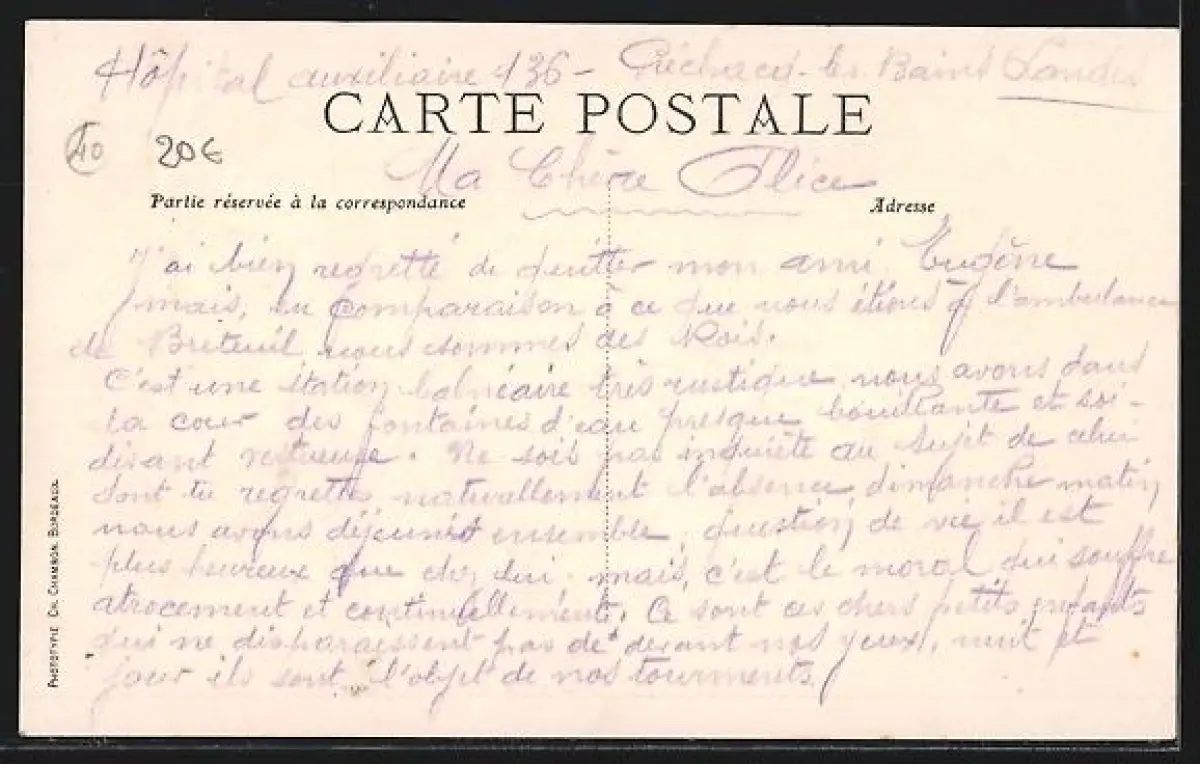 Hôpital auxiliaire 136 - Préchacq-les Bains Landes
CARTE POSTALE
40
20€
Ma Chère Alice
Partie réservée à la correspondance
Adresse
J'ai bien regretté de quitter mon ami Eugène
mais, en comparaison à ce que nous étions à l'ambulance
de Breteuil nous sommes des Rois.
C'est une station balnéaire très rustique nous avons dans
la cour des fontaines d'eau presque bouillante et soi-
disant . Ne sois pas inquiète au sujet de celui
dont tu regrettes naturellement l'absence, dimanche matin
nous avons déjeuné ensemble, question de vie il est
plus heureux que chez lui. mais, c'est le moral qui souffre
atrocement et continuellement. Ce sont ces chers petits enfants
qui ne disparaissent pas de devant nos yeux, nuit et
jour ils sont l'objet de nos tourments
PHOTOTYPIE CH. CHAMBON, BORDEAUX